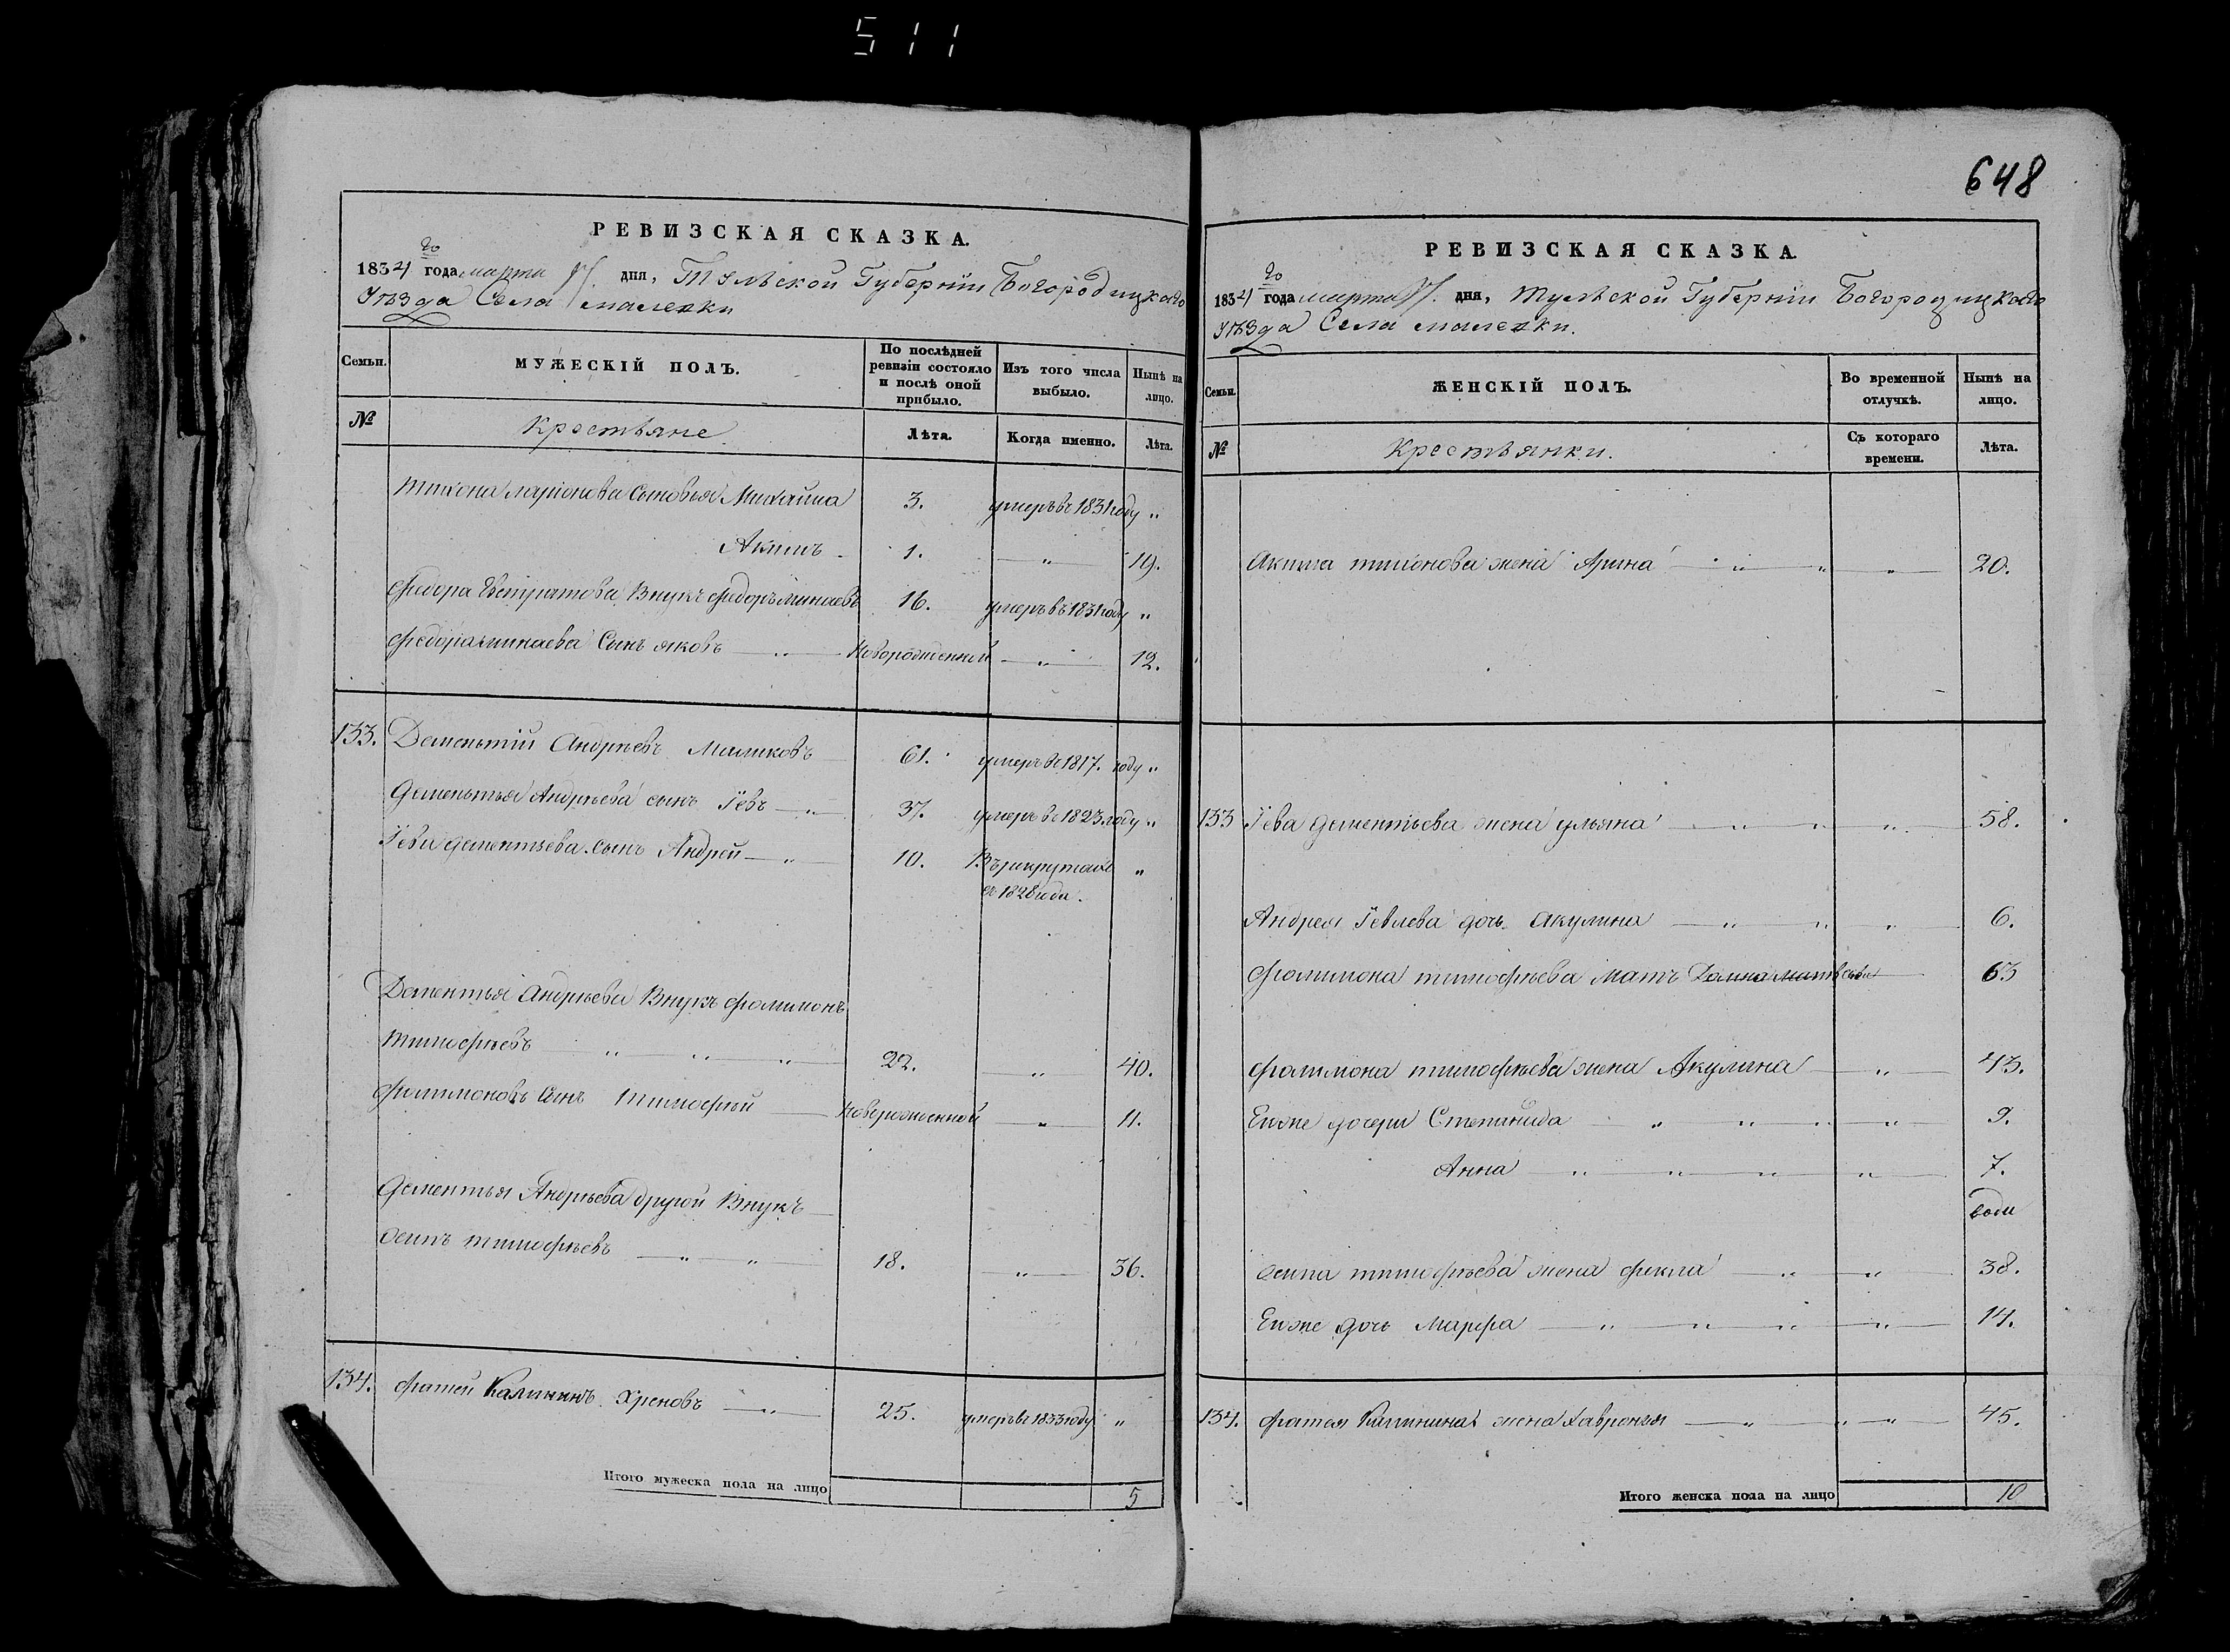 511
648
РЕВИЗСКАЯ СКАЗКА.
1834 го года марта дня, Тульской Губерніи Богородицкаго
Уѣзда Села малевки
Семьи.
МУЖЕСКІЙ ПОЛЪ.
По послѣдней ревизіи состояло и послѣ оной прибыло.
Изъ того числа выбыло.
Нынѣ на лицо.
№
Крестьяне
Лѣта.
Когда именно.
Лѣта.
тихона ларіонова сыновья Михайла 3. умеръ въ 1831 году "
Акимъ 1. " 19.
Федора Евстратова Внукъ федоръ минаевъ 16. умеръ въ 1831 году "
Федора минаева Сынъ яковъ " Новорожденной " 12.
133. Дементій Андрѣевъ Маликовъ 61. умеръ в 1817. году "
Дементья Андрѣева сынъ Іевъ " 37. умеръ в 1823. году "
Іева дементьева сынъ Андрей " 10. Въ рекрутахъ "
съ 1828 года.
Дементья Андрѣева Внукъ фолимонъ
тимофѣевъ " " " 22. " 40.
филимоновъ Сынъ тимофѣй Новорожденной " 11.
Дементья Андрѣева другой Внукъ
осипъ тимофѣевъ " " 18. " 36.
134. фатей Калининъ Хреновъ " 25. умеръ въ 1833 году "
Итого мужеска пола на лицо 5
РЕВИЗСКАЯ СКАЗКА.
1834 го года марта дня, Тульской Губерніи Богородицкаго
Уѣзда Села малевки.
Семьи.
ЖЕНСКІЙ ПОЛЪ.
Во временной отлучкѣ.
Нынѣ на лицо.
№
Крестьянки.
Съ котораго времени.
Лѣта.
Акима тихонова жена Арина " " " 20.
133 Іева дементьева жена ульяна " " " 58.
Андрея Іевлева дочь Акулина " " " 6.
фолимона тимофѣева мать Домна матвеева 63
фолимона тимофѣева жена Акулина " 43.
Ево же дочери Степанида " " " " 9.
Анна " " " " 7.
года
осипа тимофѣева жена фекла " " 38.
Ево же дочь Марфа " " " " 14.
134. фатея Калинина жена Хавронья " " " 45.
Итого женска пола на лицо 10